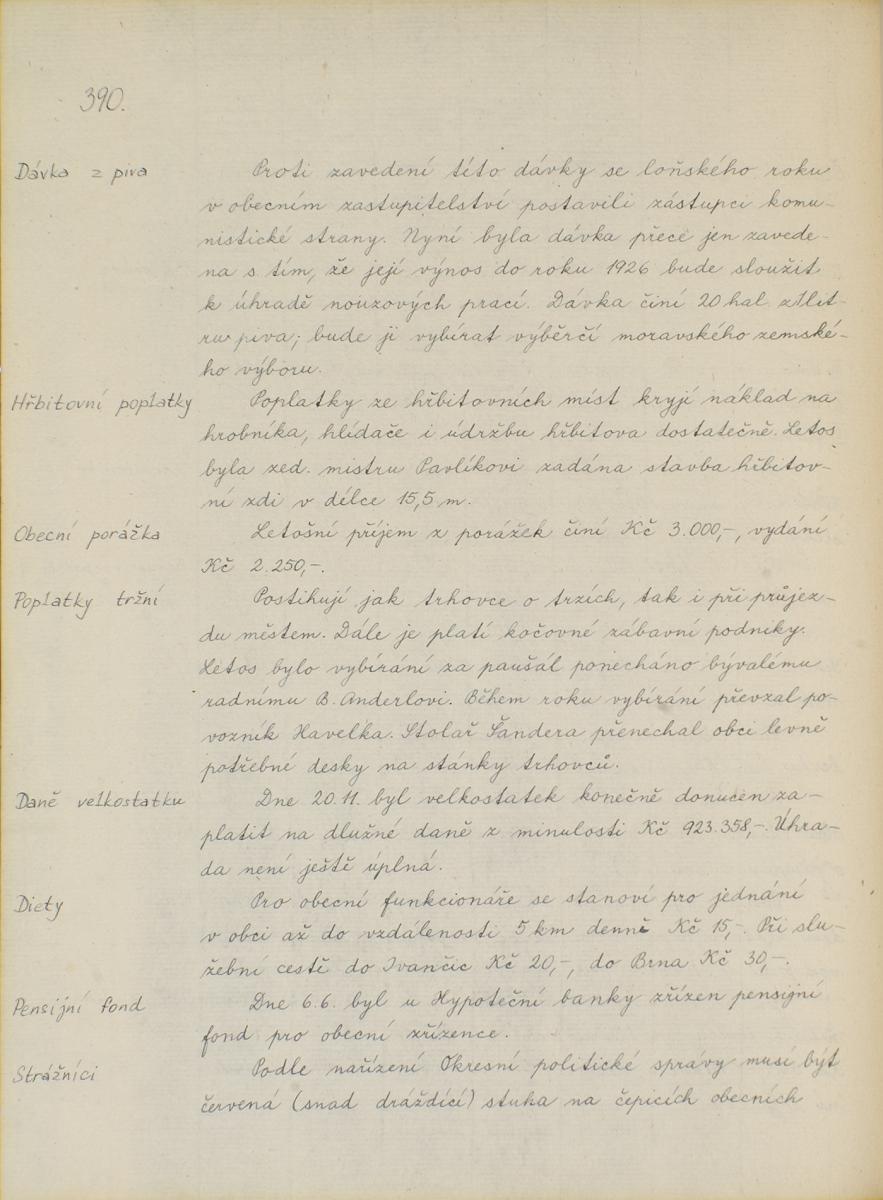 390.
Dávka z piva
Proti zavedení této dávky se loňského roku
v obecním zastupitelství postavili zástupci komu-
nistické strany. Nyní byla dávka přece jen zavede-
na s tím, že její výnos do roku 1926 bude sloužit
k úhradě nouzových prací. Dávka činí 20 hal z 1 lit-
ru piva; bude ji vybírat výběrčí moravského zemské-
ho výboru.
Hřbitovní poplatky
Poplatky ze hřbitovních míst kryjí náklad na
hrobníka, hlídače i údržbu hřbitova dostatečně. Letos
byla zed. mistru Pavlíkovi zadána stavba hřbitov-
ní zdi v délce 15,5 m.
Obecní porážka
Letošní příjem z porážek činí Kč 3.000,-, vydání
Kč 2.250,-.
Poplatky tržní
Postihují jak trhovce o trzích, tak i při průjez-
du městem. Dále je platí kočovné zábavní podniky.
Letos bylo vybírání za paušál ponecháno bývalému
radnímu B. Anderlovi. Během roku vybírání převzal po-
vozník Havelka. Stolař Šandera přenechal obci levně
potřebné desky na stánky trhovců.
Daně velkostatku
Dne 20.11. byl velkostatek konečně donucen za-
platit na dlužné daně z minulosti Kč 923.358,-. Úhra-
da není ještě úplná.
Diety
Pro obecní funkcionáře se stanoví pro jednání
v obci až do vzdálenosti 5 km denně Kč 15,-. Při slu-
žební cestě do Ivančic Kč 20,-, do Brna Kč 30,-.
Pensijní fond
Dne 6.6. byl u Hypoteční banky zřízen pensijní
fond pro obecní zřízence.
Strážníci
Podle nařízení Okresní politické správy musí být
červená (snad dráždící) stuha na čepicích obecních